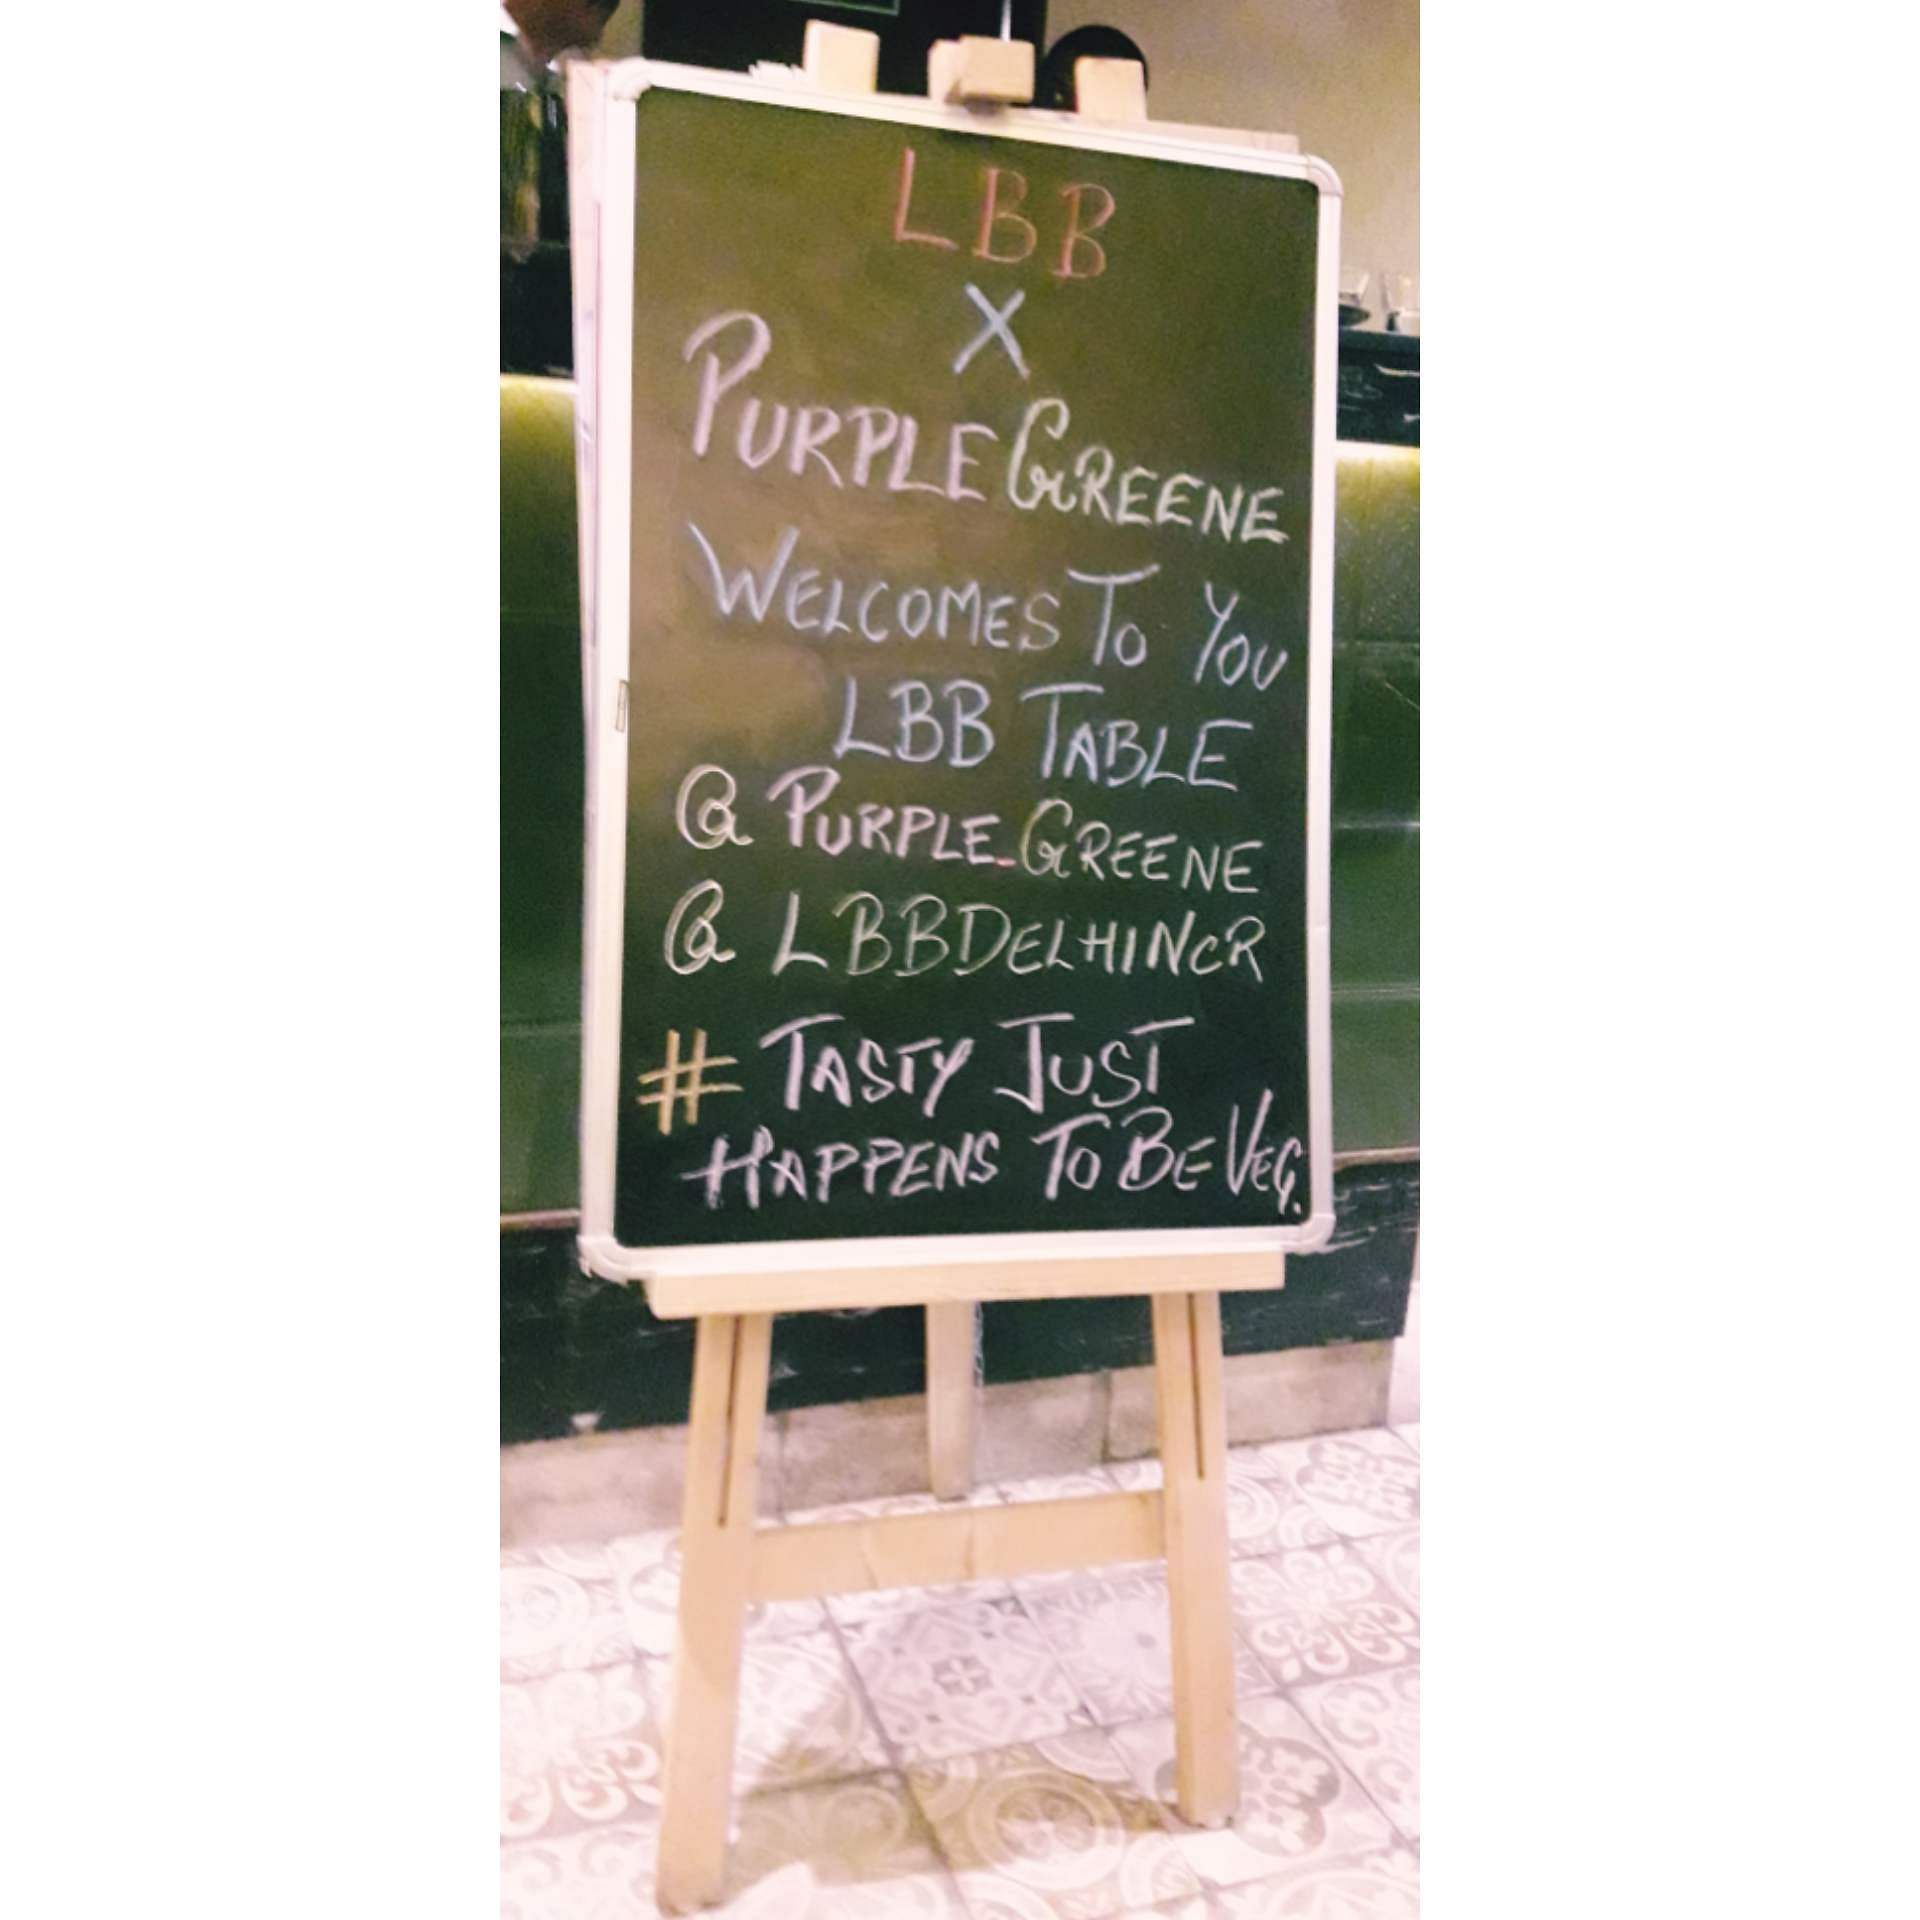 LBB
X
PURPLE GREENE
WELCOMES TO YOU
LBB TABLE
@ PURPLE_GREENE
@ LBBDELHINCR
# TASTY JUST
HAPPENS TO BE VEG.